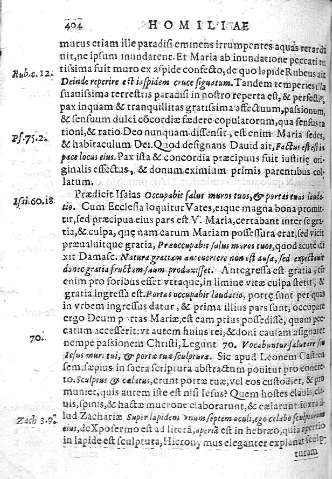 404 HOMILIAE
murus etiam ille paradisi eminens irrumpentes aquas retardauit,
ne ipsum inundarent. Et Maria ab inundatione peccati
Rub. c. 12. tissima fuit muro ex aspide confecto, de quo lapide Rubeus ait
Deinde reperire est iaspidem cruce signatum. Tandem temperies illa
suauissima terrestris paradisi in nostro reperta est, & perfectæ
pax inquam & tranquillitas gratissima affectuum, passionum,
& sensuum dulci cõcordiæ fœdere copulatorum, qua sensus
tioni, & ratio Deo nunquam dissensit, est enim Maria sedes,
Ps. 75. 2. & habitaculum Dei. Quod designans Dauid ait, Factus est in
pace locus eius. Pax ista & concordia præcipuus fuit iustitiæ originalis
effectus, & donum eximium primis parentibus collatum.
Prædicit Isaias Occupabit salus muros tuos, & portas tuas laudatio.
Isai. 60. 18. Cum Ecclesia loquitur Vates, eique magna bona promittit,
sed præcipua eius pars est V. Maria, certabant inter se gratia,
& culpa, quę nam earum Mariam possessura erat, sed vicit
præualuitque gratia, Præoccupabit salus muros tuos, quod acutè dixit
Damasc. Natura gratiam anteuertere non est ausa, sed expectauit
donec gratia fructum suum produxisset. Antegressa est gratia,
enim pro foribus esset vetaque, in limine vitæ culpa stetit, &
gratia ingressa est. Portas occupabit laudatio, portę sunt per quas
in vrbem ingressus datur, & prima illius pars sunt, occupare
ergo Deum portas Mariæ, est eam prius possedisse, quam peccatum
accesserit: vt autem huius rei; & doni causam assignaret
70. nempe passionem Christi, Legunt 70. Vocabuntur salutare
Iesus muri tui, & portæ tuæ sculptura. Sic apud Leonem Castrum
sem, sæpius in sacra scriptura abstractum ponitur pro concreto.
Sculptus & cælatus, erunt portæ tuæ, vel eos custodiet, & pro
muniet, quis autem iste est nisi Iesus? Quem hostes clauis,
uis, spinis, & hastæ mucrone elaborarunt, & cælarunt
Zach. 3. 9. lud Zachariæ Super lapidem vnum septem oculi, ego celabo sculpturam
eius, de Xpo sermo est ad literã, aperiã est in hebræo, quia
in lapide est sculptura, Hierony. mus eleganter explanat sculpturam